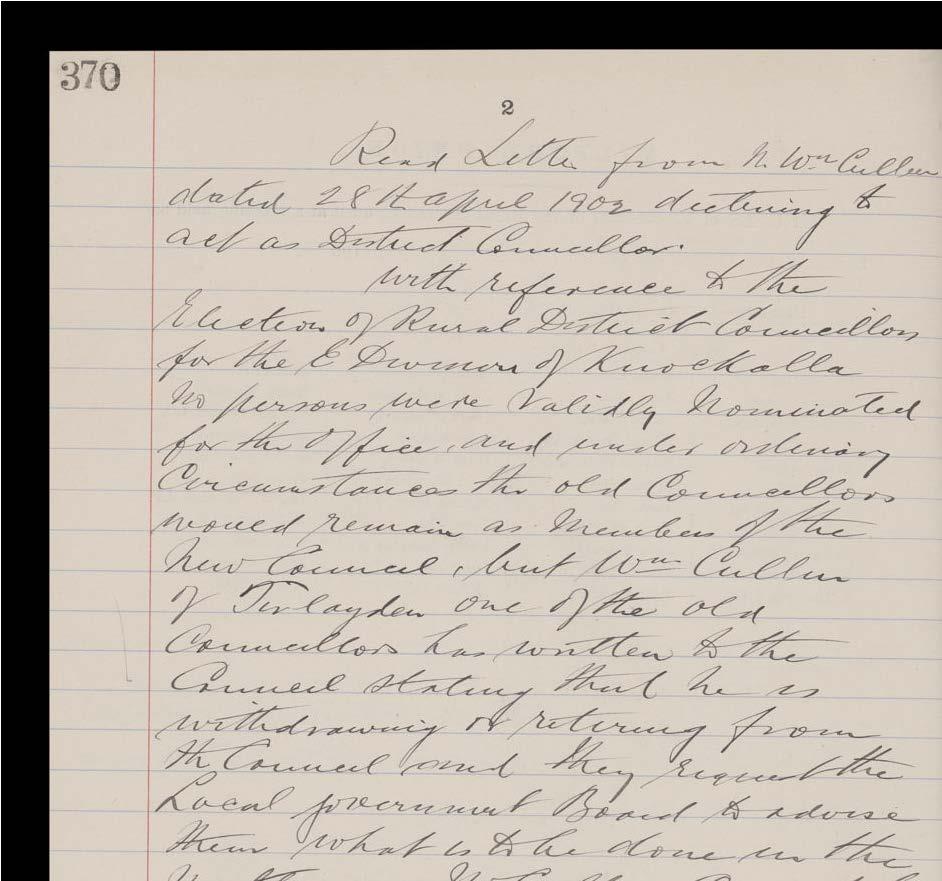 370
2
Read Letter from Mr. Wm Cullen
dated 28th april 1902 declining to
act as District Councillor.
with reference to the
Election of Rural District Councillors
for the E Division of Knockalla
No persons were Validly Nominated
for the office, and under ordinary
Circumstances the old Councellors
would remain as Members of the
New Council, but Wm Cullen
of Tirlayden one of the old
Councellors has written to the
Council stating that he is
withdrawing or retiring from
the Council and they request the
Local government Board to advise
them what is to be done in the